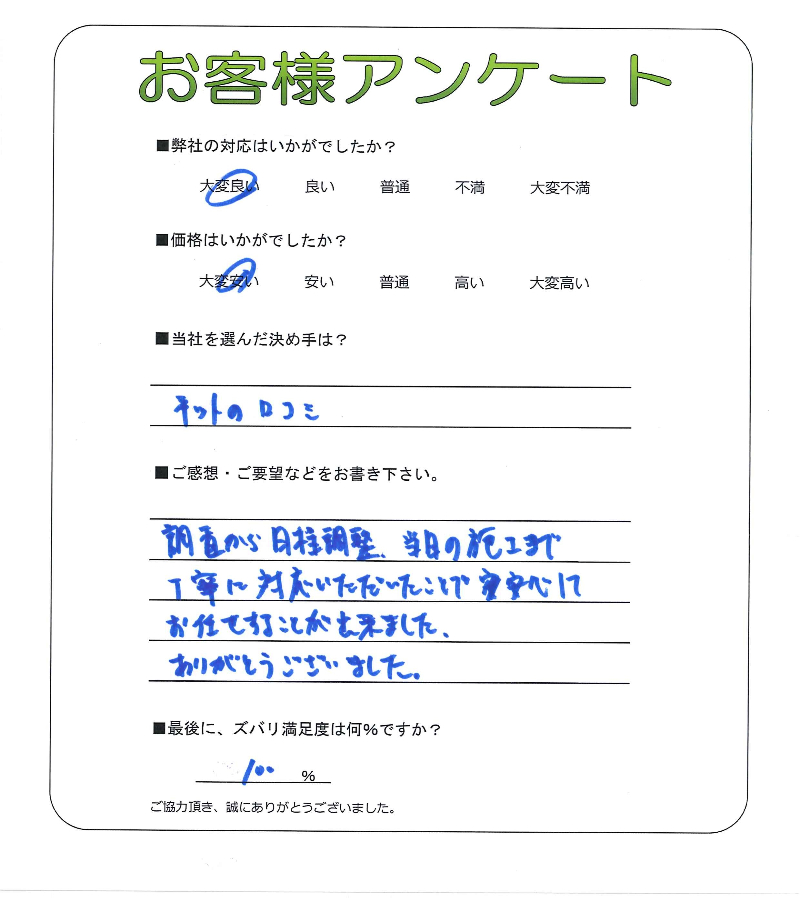 お客様アンケート
■弊社の対応はいかがでしたか？
大変良い 良い 普通 不満 大変不満
■価格はいかがでしたか？
大変安い 安い 普通 高い 大変高い
■当社を選んだ決め手は？
ネットの口コミ
■ご感想・ご要望などをお書き下さい。
調査から日程調整、当日の施工まで
丁寧に対応いただいたことで安心して
お任せすることが出来ました、
ありがとうございました。
■最後に、ズバリ満足度は何%ですか？
100 %
ご協力頂き、誠にありがとうございました。